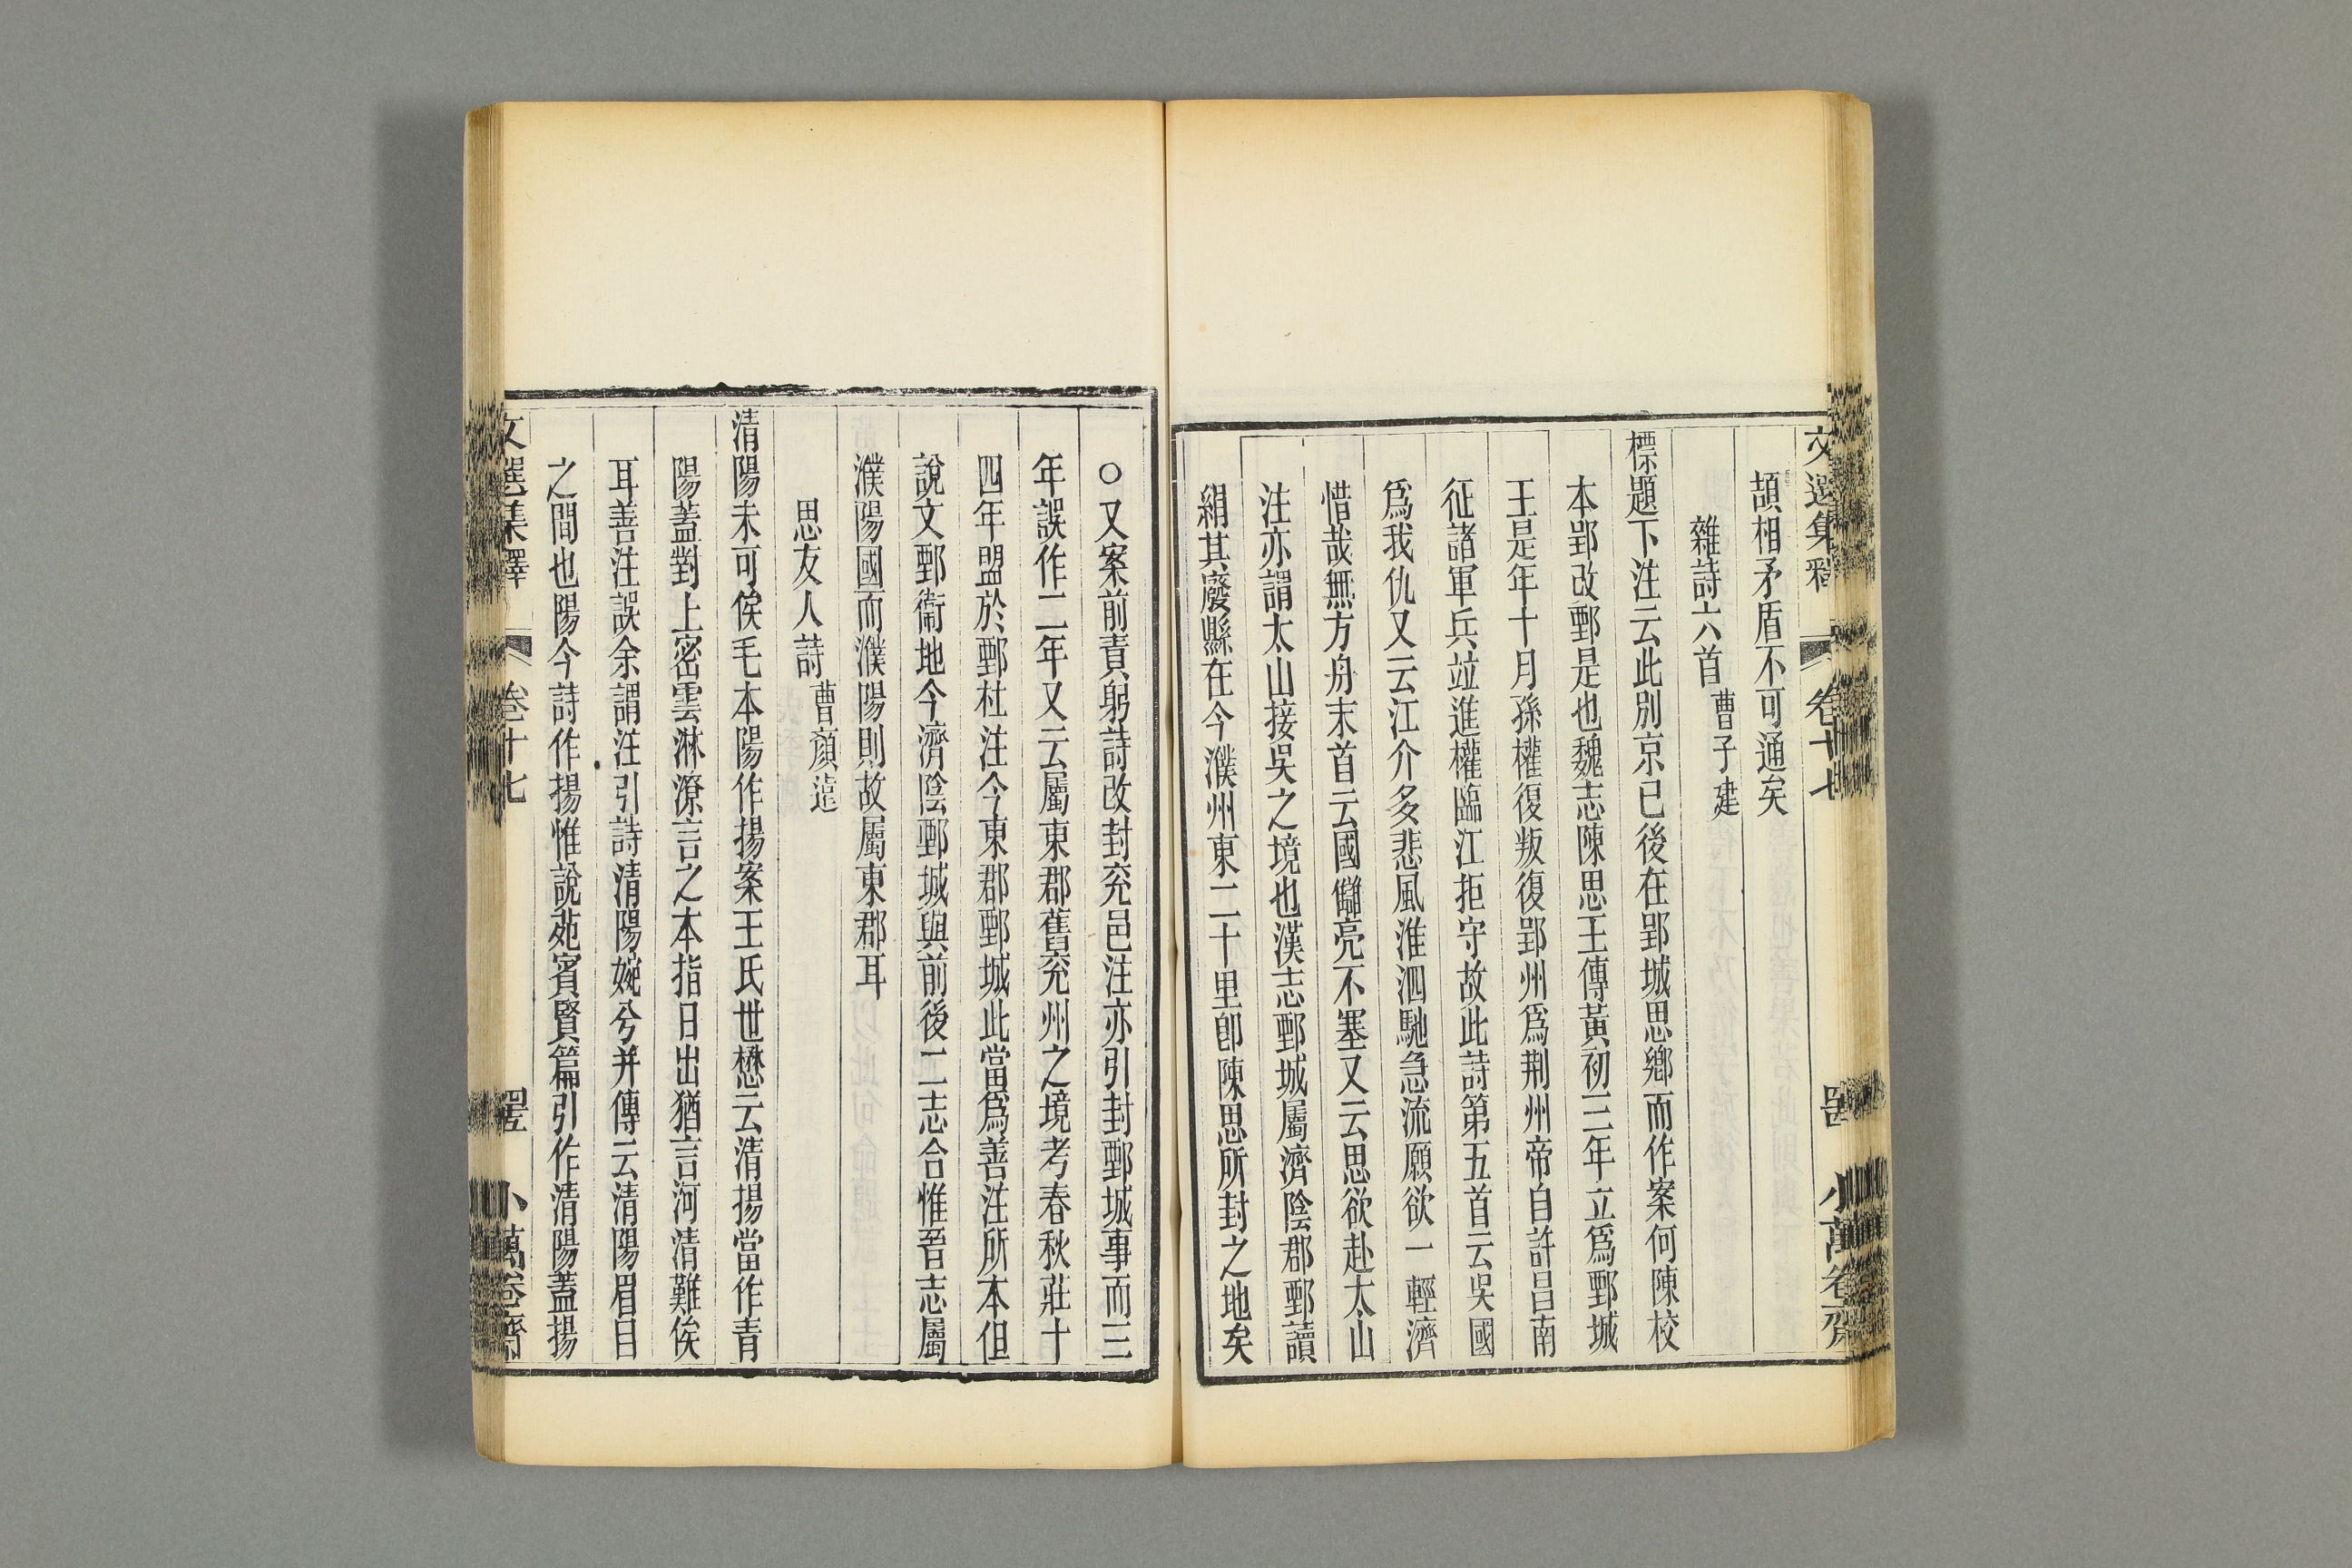 文選集釋 卷十七 小萬卷齋
頡相矛盾不可通矣
雜詩六首 曹子建
標題下注云此別京已後在郢城思鄉而作案何陳校
本郢改鄄是也魏志陳思王傳黃初三年立爲鄄城
王是年十月孫權復叛復郢州爲荆州帝自許昌南
征諸軍兵竝進權臨江拒守故此詩第五首云吳國
爲我仇又云江介多悲風淮泗馳急流願欲一輕濟
惜哉無方舟末首云國讎亮不塞又云思欲赴太山
注亦謂太山接吳之境也漢志鄄城屬濟陰郡鄄讀
絹其廢縣在今濮州東二十里卽陳思所封之地矣
○又案前責躬詩改封兖邑注亦引封鄄城事而三
年誤作二年又云屬東郡舊兖州之境考春秋莊十
四年盟於鄄杜注今東郡鄄城此當爲善注所本但
說文鄄衞地今濟陰鄄城與前後二志合惟晉志屬
濮陽國而濮陽則故屬東郡耳
思友人詩 曹顏遠
清陽未可俟毛本陽作揚案王氏世懋云清揚當作青
陽蓋對上密雲淋潦言之本指日出猶言河清難俟
耳善注誤余謂注引詩清陽婉兮并傳云清陽眉目
之間也陽今詩作揚惟說苑賓賢篇引作清陽蓋揚
文選集釋 卷十七 小萬卷齋